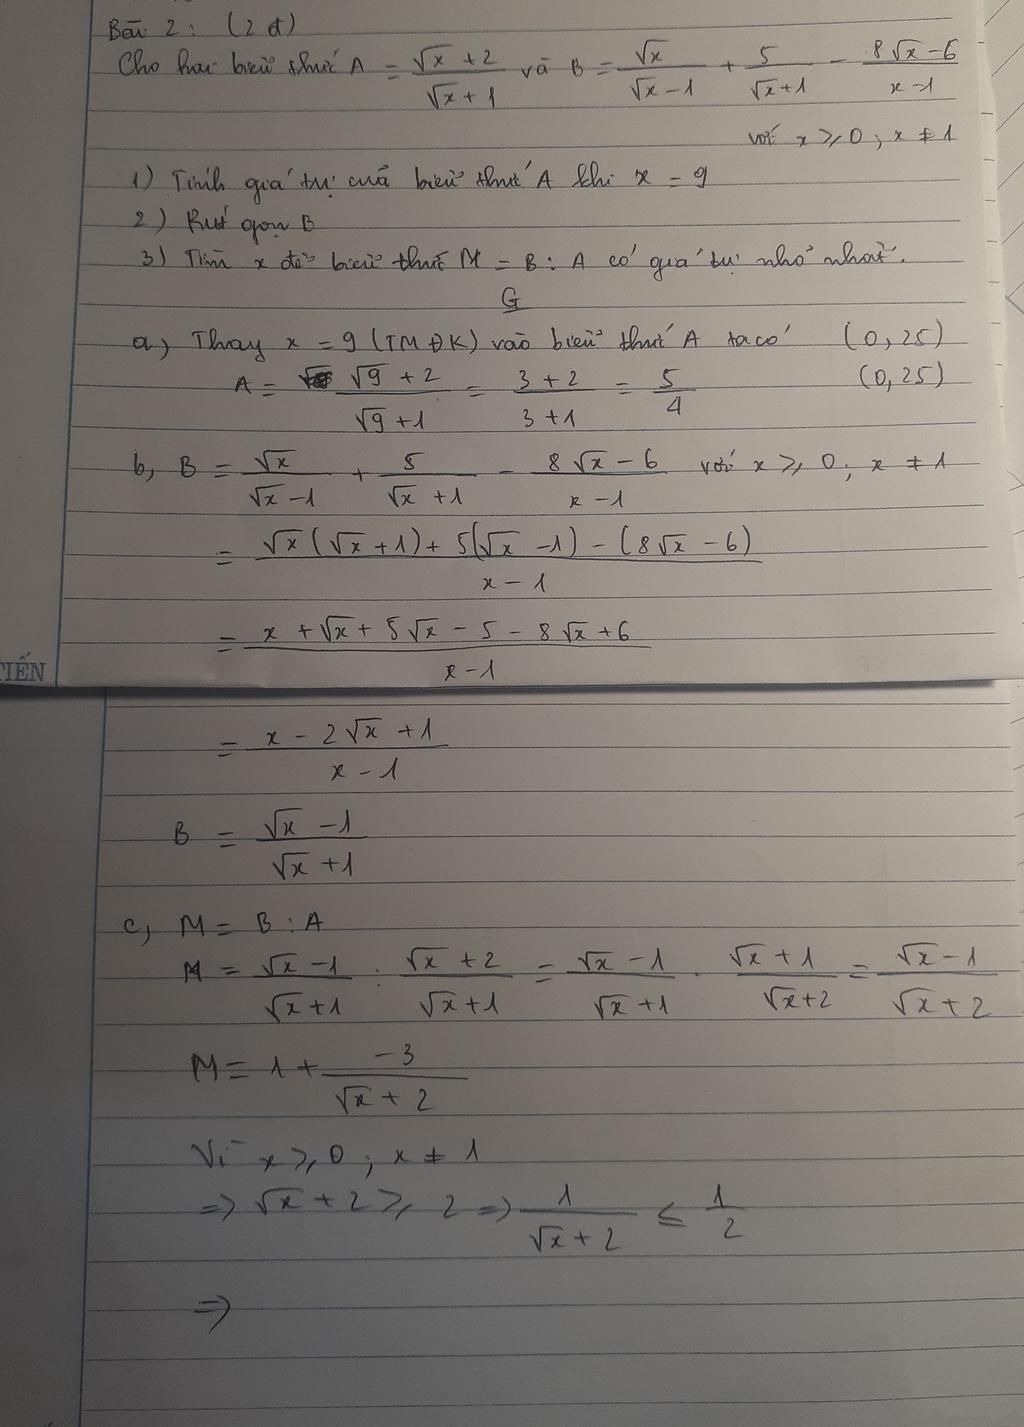 Bài 2 : (2 đ)
Cho hai biểu thức A = (√x + 2)/(√x + 1) và B = √x/(√x - 1) + 5/(√x + 1) - (8√x - 6)/(x - 1)
với x ≥ 0 ; x ≠ 1
1) Tính giá trị của biểu thức A khi x = 9
2) Rút gọn B
3) Tìm x để biểu thức M = B : A có giá trị nhỏ nhất.
G
a, Thay x = 9 (TMĐK) vào biểu thức A ta có (0,25)
A = (√9 + 2)/(√9 + 1) = (3 + 2)/(3 + 1) = 5/4 (0,25)
b, B = √x/(√x - 1) + 5/(√x + 1) - (8√x - 6)/(x - 1) với x ≥ 0 ; x ≠ 1
= (√x(√x + 1) + 5(√x - 1) - (8√x - 6))/(x - 1)
= (x + √x + 5√x - 5 - 8√x + 6)/(x - 1)
TIẾN
= (x - 2√x + 1)/(x - 1)
B = (√x - 1)/(√x + 1)
c, M = B : A
M = (√x - 1)/(√x + 1) : (√x + 2)/(√x + 1) = (√x - 1)/(√x + 1) . (√x + 1)/(√x + 2) = (√x - 1)/(√x + 2)
M = 1 + (-3)/(√x + 2)
Vì x ≥ 0 ; x ≠ 1
=> √x + 2 ≥ 2 => 1/(√x + 2) ≤ 1/2
=>